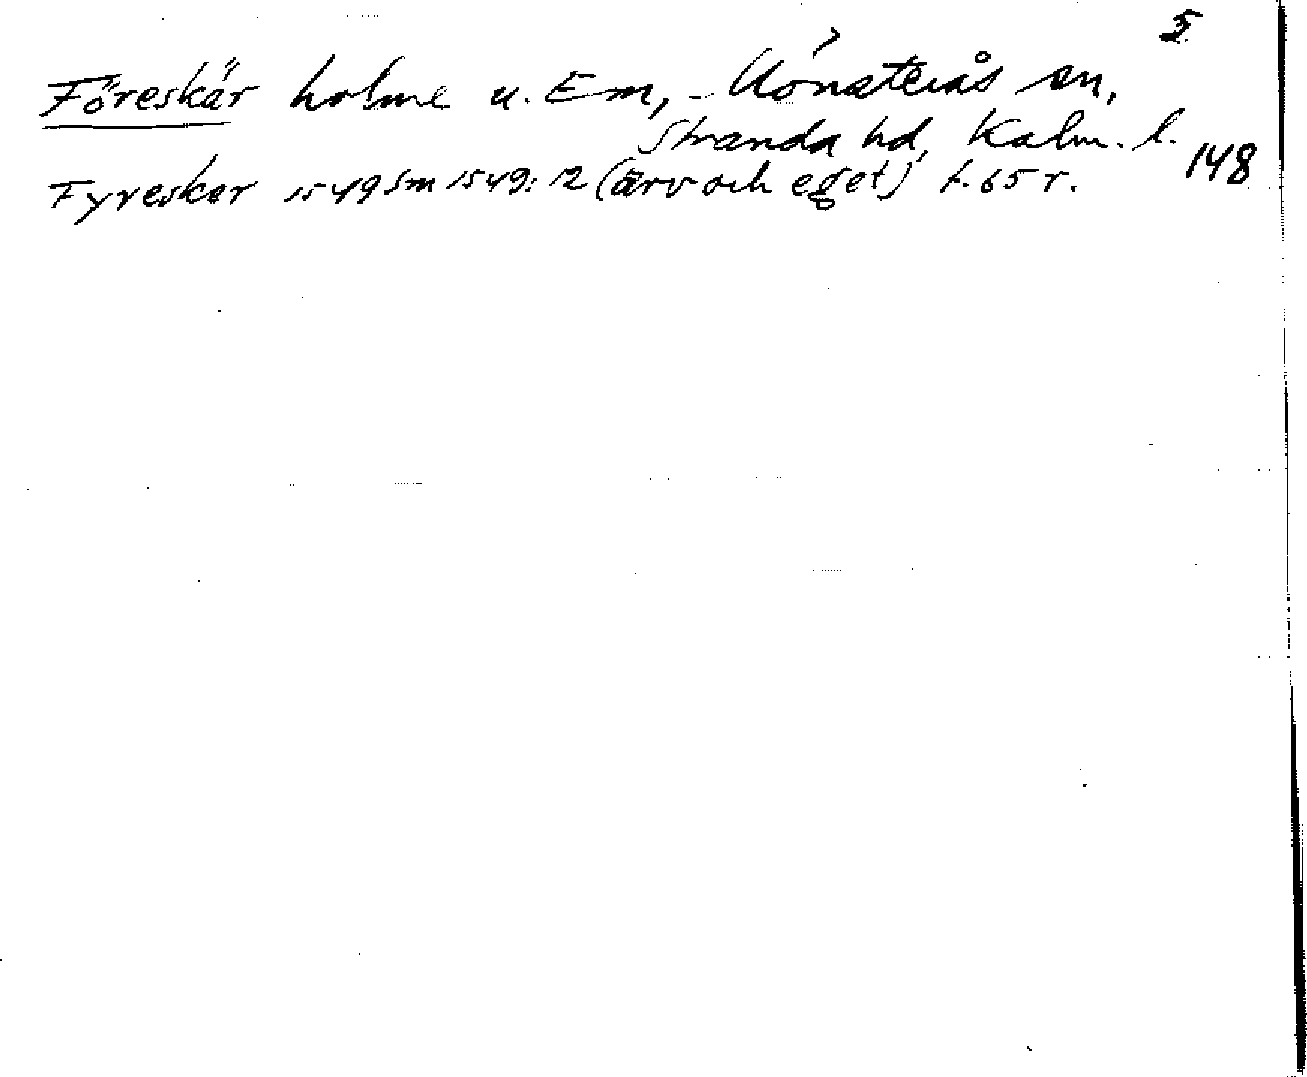 5
Föreskär holme u. Em, Mönsterås sn,
Stranda hd, Kalm. l.
148
Fyreskær 1549 Sm 1549: 12 (arv och eget) f. 65 r.